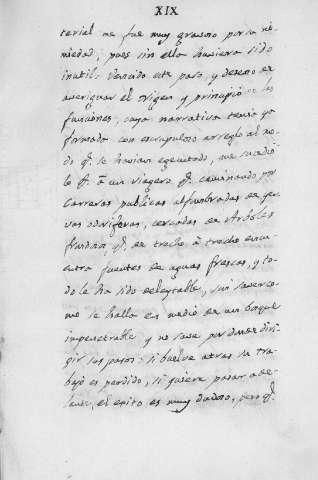 XIX
terial me fue muy gravoso por su ne-
miedad; pues sin ella huviera sido
inutil. Vencido este paso, y deseoso de
averiguar el origen y principio de las
funciones, cuya narrativa tenia ya
formada con escrupuloso arreglo al mo-
do q.e se havian egecutado, me sucedió
lo q.e á un viagero q.e caminando por
Carreras publicas alfombradas de
vas odoriferas, cercadas de Arboles
q.e de trecho á trecho encu-
entra fuentes de aguas frescas, y to-
do le ha sido deleytable, sin saver co-
mo se halla en medio de un bosque
impenetrable y no save por donde diri-
gir sus pasos: si buelve atras su tra-
bajo es perdido, si quiere pasar ade-
lante, el exito es muy dudoso, pero q.e